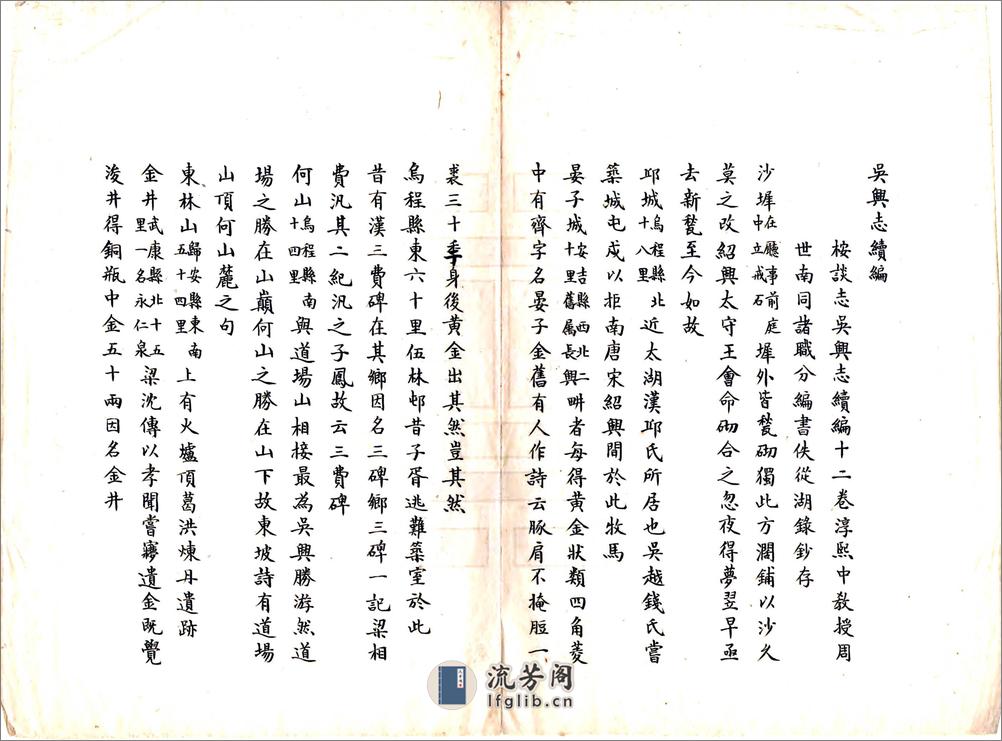 吳興志續編
桉談志吳興志續編十二卷淳熙中教授周
世南同諸職分編書佚從湖錄鈔存
沙墀在廳事前庭中立戒石墀外皆甃砌獨此方濶鋪以沙久
莫之改紹興太守王會命砌合之忽夜得夢翌早亟
去新甃至今如故
邱城烏程縣北十八里近太湖漢邱氏所居也吳越錢氏嘗
築城屯戍以拒南唐宋紹興間於此牧馬
晏子城安吉縣西北二十里舊属長興畊者每得黄金狀類四角菱
中有齊字名晏子金舊有人作詩云豚肩不掩脰一
裘三十秊身後黄金出其然豈其然
烏程縣東六十里伍林邨昔子胥逃難築室於此
昔有漢三費碑在其鄉因名三碑鄉三碑一記梁相
費汎其二紀汎之子鳳故云三費碑
何山烏程縣南十四里與道場山相接最為吳興勝游然道
場之勝在山巔何山之勝在山下故東坡詩有道場
山頂何山麓之句
東林山歸安縣東南五十四里上有火爐頂葛洪煉丹遺跡
金井武康縣北十五里一名永仁泉梁沈傳以孝聞嘗寤遺金既覺
浚井得銅瓶中金五十兩因名金井
流芳阁
lfglib.cn